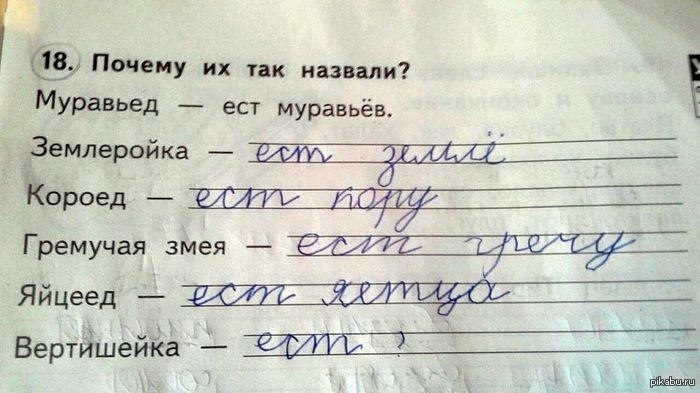 18. Почему их так назвали?
Муравьед — ест муравьёв.
Землеройка — ест землё
Короед — ест кору
Гремучая змея — ест гречу
Яйцеед — ест яетца
Вертишейка — ест ?
pikabu.ru